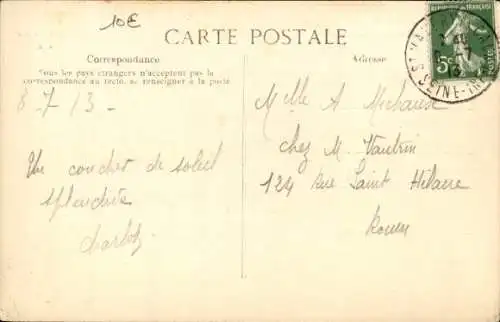 10€
CARTE POSTALE
Correspondance
Tous les pays étrangers n'acceptent pas la
correspondance au recto, se renseigner à la poste
Adresse
RÉPUBLIQUE FRANÇAISE
5c
SEINE-INF
8-7-13-
Un coucher de soleil
splendide
Charlot
Melle A Michause
chez M. Vautrin
124 Rue Saint Hilaire
Rouen